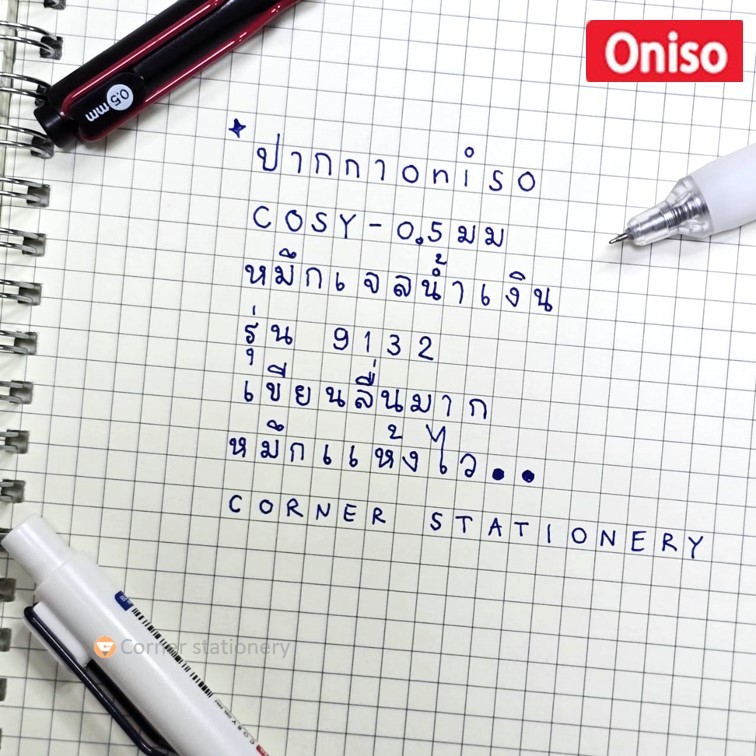 Oniso
0.5 mm
ปากกาoniso
COSY - 0.5 มม
หมึกเจลน้ำเงิน
รุ่น 9132
เขียนลื่นมาก
หมึกแห้งไว..
CORNER STATIONERY
Corner stationery